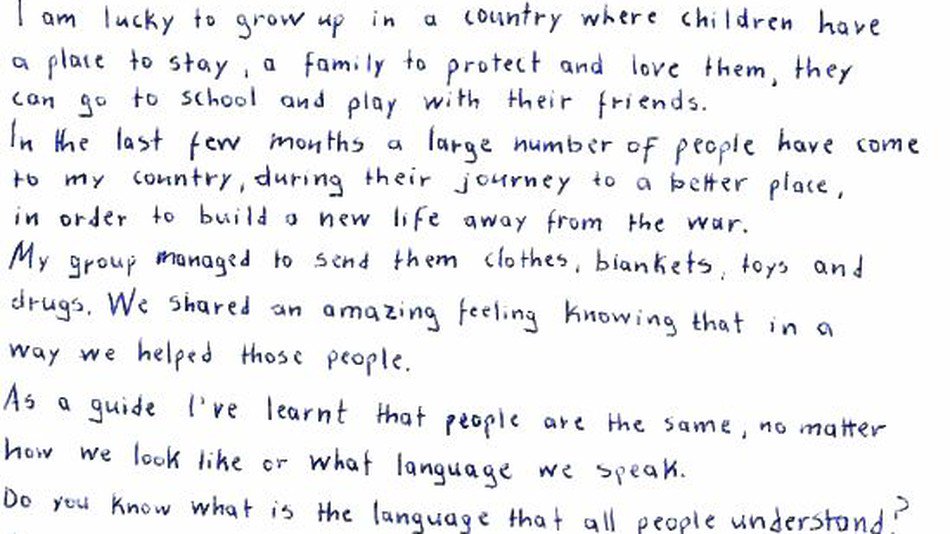 I am lucky to grow up in a country where children have
a place to stay, a family to protect and love them, they
can go to school and play with their friends.
In the last few months a large number of people have come
to my country, during their journey to a better place,
in order to build a new life away from the war.
My group managed to send them clothes, blankets, toys and
drugs. We shared an amazing feeling knowing that in a
way we helped those people.
As a guide I've learnt that people are the same, no matter
how we look like or what language we speak.
Do you know what is the language that all people understand?